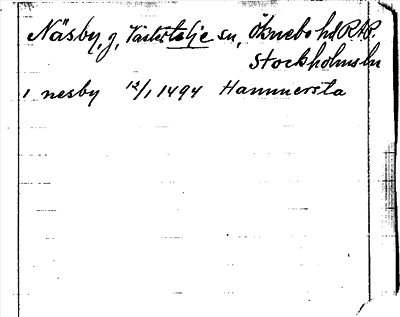 Näsby, g, Västertelje sn, Öknebo hd RAP.
Stockholms ln
i nesby 12/1 1494 Hammersta